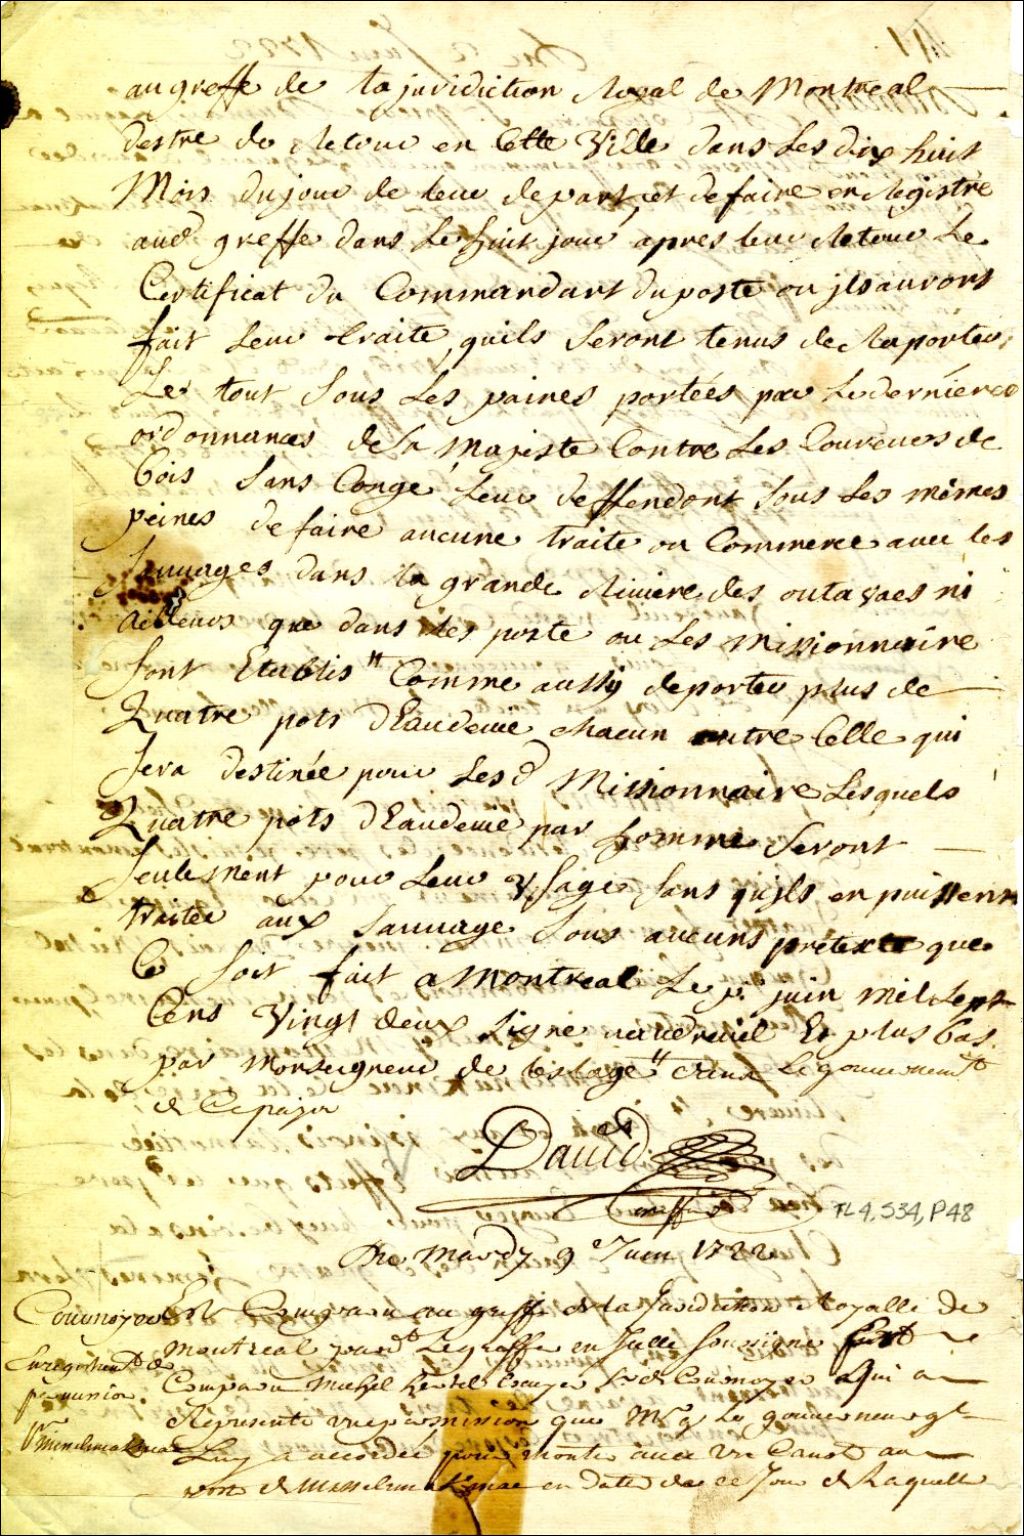 au greffe de la juridiction Royal de Montreal
destre de Retour en Cette Ville dans Les dix huit
Mois du jour de leur depart, et de faire en Registre
aud greffe dans Le huit jour apres leur Retour Le
Certificat du Commandant du poste ou jls auront
fait Leur traite, quils Seront tenus de Raporter,
Le tout Sous Les paines portées par Le dernieres
ordonnances de Sa Majeste Contre Les Coureurs de
Bois Sans Congé Leur deffendont Sous Les mêmes
peines de faire aucune traite ou Commerce avec les
Sauvages dans la grande Riviere des outavaes ni
ailleurs que dans les poste ou Les Missionnaire
Sont Etablis" Comme aussy de porter plus de
Quatre pots dEaudevie chacun outre Celle qui
Sera destinée pour Lesd Missionnaire Lesquels
Quatre pots dEaudevie par homme Seront
Seulement pour Leur Vsage Sans quils en puissent
traiter aux Sauvage Sous aucuns pretexte que
Ce Soit fait a Montreal Le p.r juin mil Sept
Cens Vingt deux Signé vaudreuil Et plus bas
par Monseigneur de Lestage"
de Ce pays
David
greffier
TL4, S34, P48
Du Mardy 9e Juin 1722
Cournoyer
Est Comparu au greffe de la Juridiction Royalle de
Montreal pard Le greffier en Jcelle Soussigné
Enregistrem.t de
permission
Comparu Michel hertel Escuyer Sr de Cournoyer Qui a
Represente une permission que Mgr Le gouverneur gl
Luy a accordée pour monter avec un Canot au
poste de Missilimakinac en datte de ce Jour de Laquelle